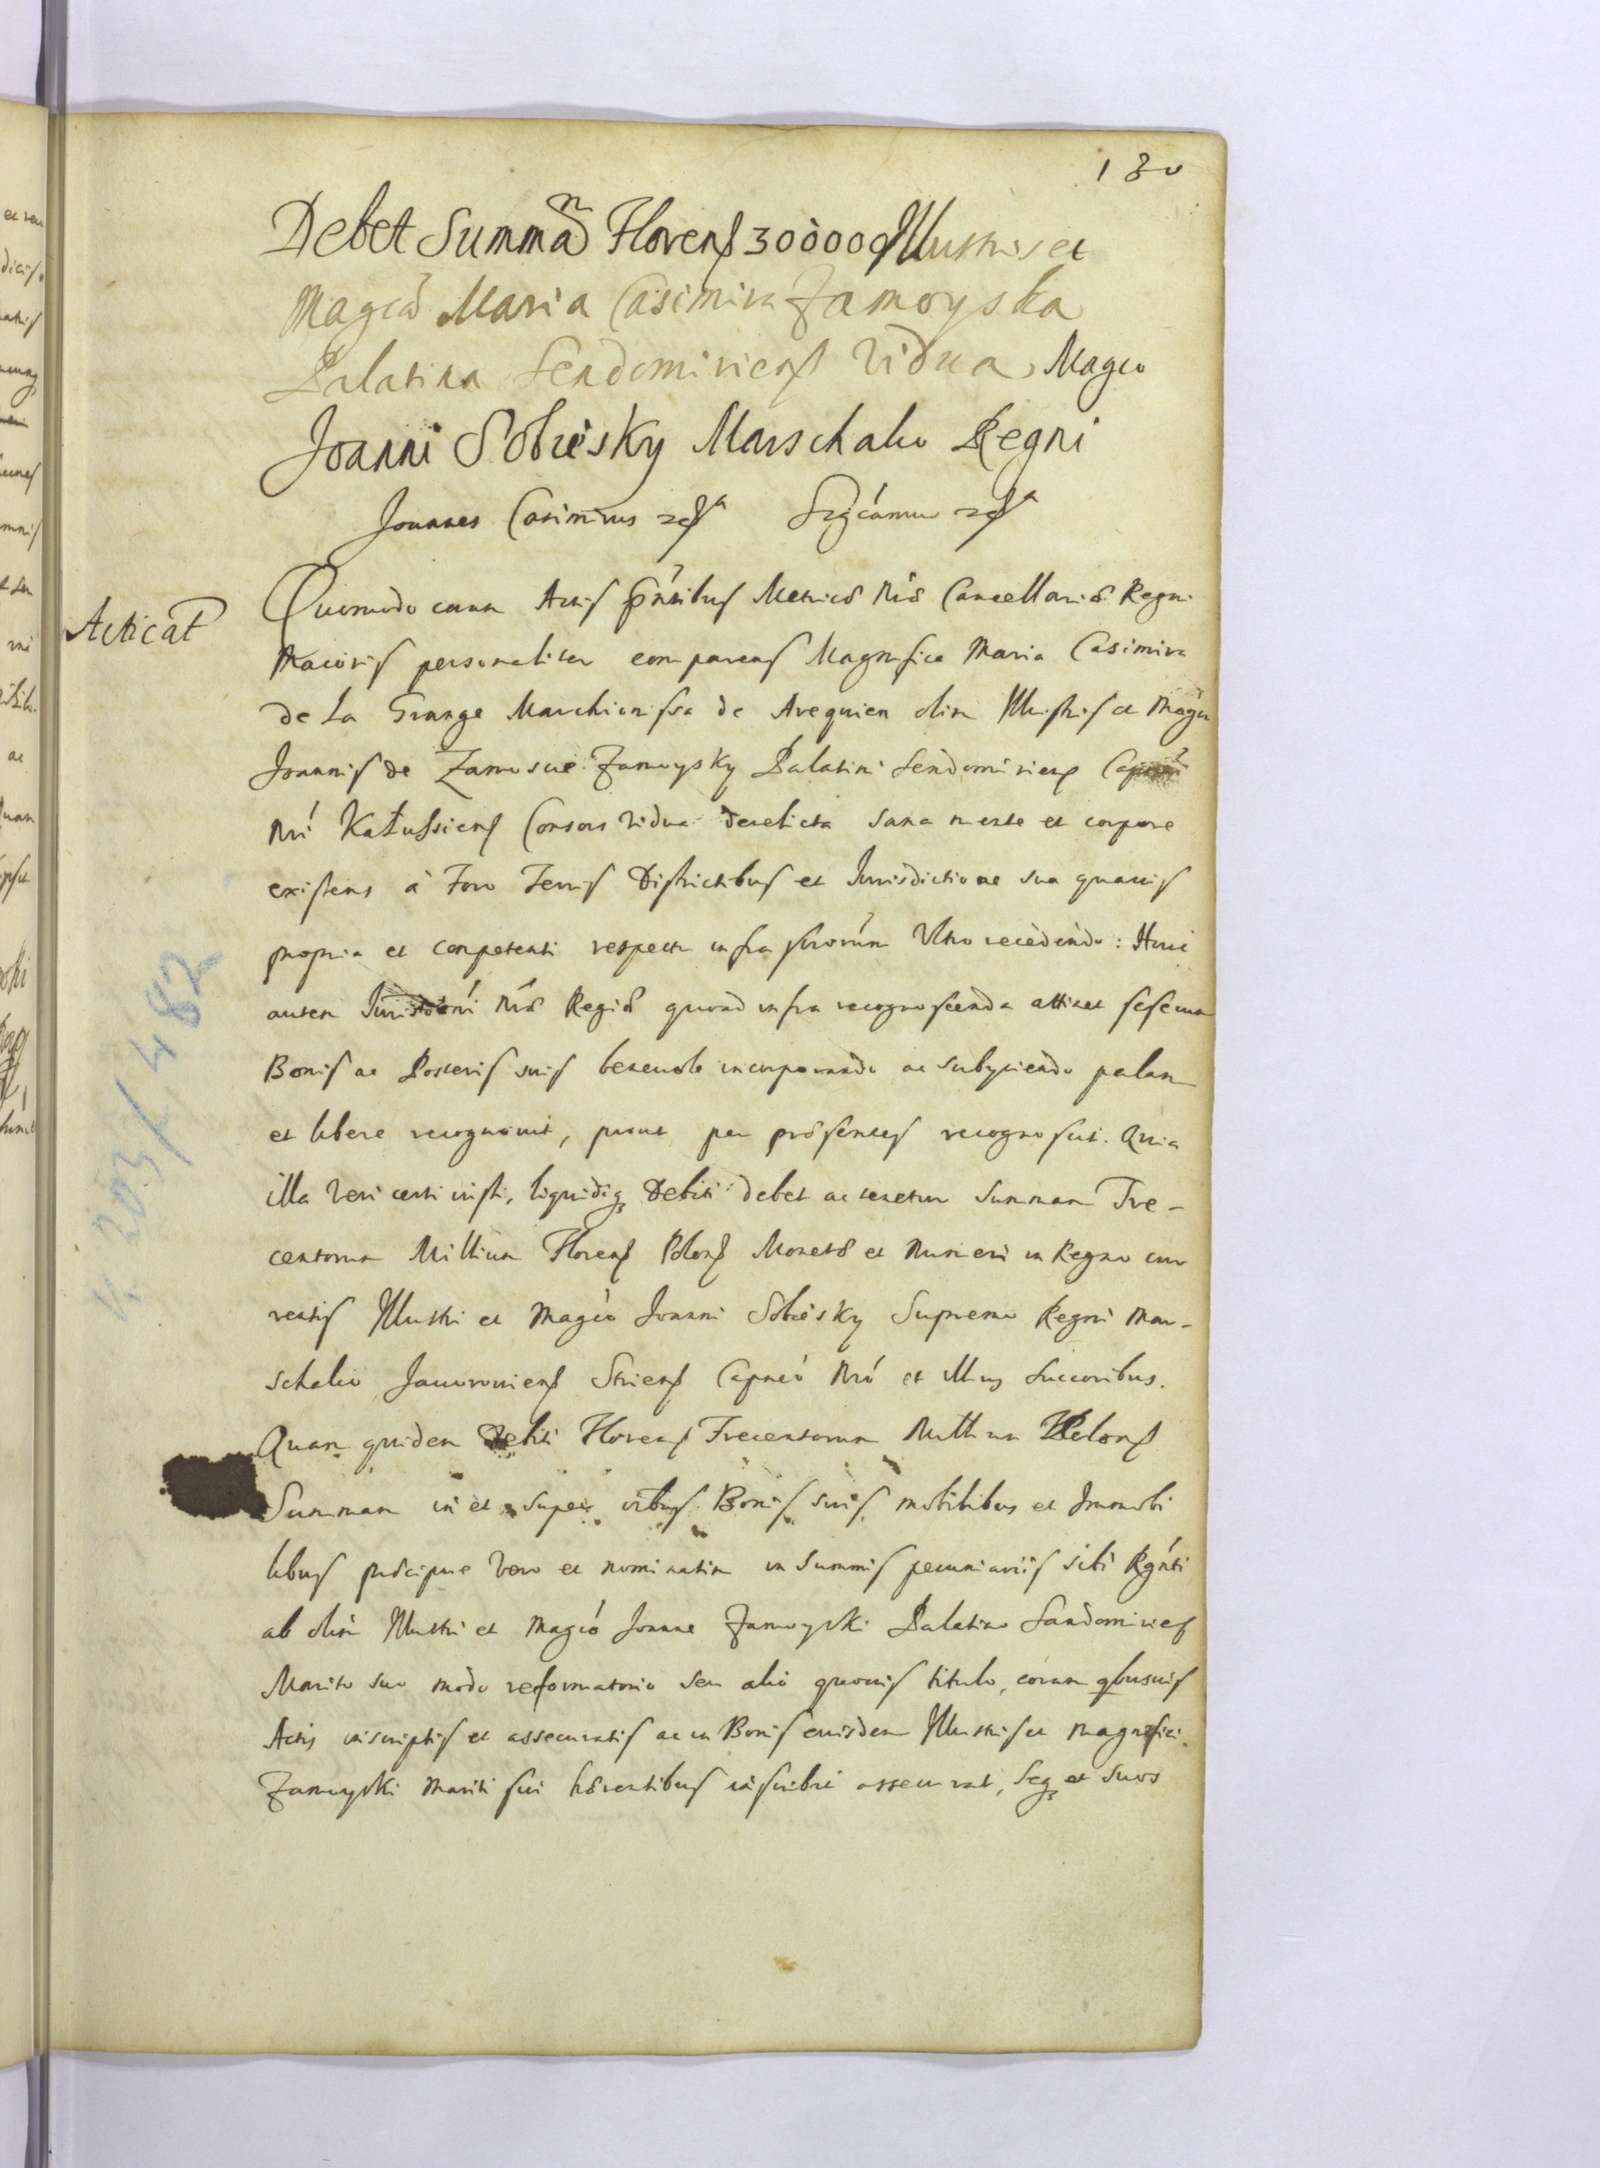 180
Debet Summã Florenſ 300000 Illustris et
Magcã Maria Casimira Zamoyska
Palatina Sendomiriensſ Vidua Magco
Joanni Sobiesky Marschalco Regni
Joannes Casimirus
Acticat
Quomodo coram Actis pñtibus Metricæ Nræ Cancellariæ Regni
Maioris personaliter comparens Magnifica Maria Casimira
de La Grange Marchionissa de Arequien olim Illustris et Magci
Joannis de Zamoscie Zamoysky Palatini Sendomiriens
Nri Kałussiens Consors Vidua derelicta sana mente et corpore
existens à Foro Terris Districtibus et Jurisdictione sua quavis
propria et competenti respectu infra scrorum Ultro recedendo: Huic
autem Nræ Regiæ quoad infra recognoscenda attinet sese cum
Bonis ac Posteris suis benevole incorporando ac subyciendo palam
et libere recognovit, prout per præsentes recognoscit. Quia
illa Veri certi iusti, liquidiq Debiti debet ac tenetur Summam Tre-
centorum Millium Florens Polons Monetæ et Numeri in Regno cur
rentis Illustri et Magco Joanni Sobiesky Supremo Regni Mar-
schalco Javoroviens Striens Capneo Nro et Illius Succoribus.
Quam quidem Debiti Florens Trecentorum Millium Polons
Summam in et super oibus Bonis suis mobilibus et Immobi
libus præcipue Vero et nominatim in Summis pecuniariis sibi Rgnti
ab olim Illustri et Magco Joanne Zamoyski Palatino Sandomiries
Marito suo modo reformatorio seu alio quovis titulo, coram qbusvis
Actis inscriptis et assecuratis ac in Bonis eiusdem Illustris et Magnifici
Zamoyski Mariti sui hærentibus inscribit assecurat, Seq et Suos